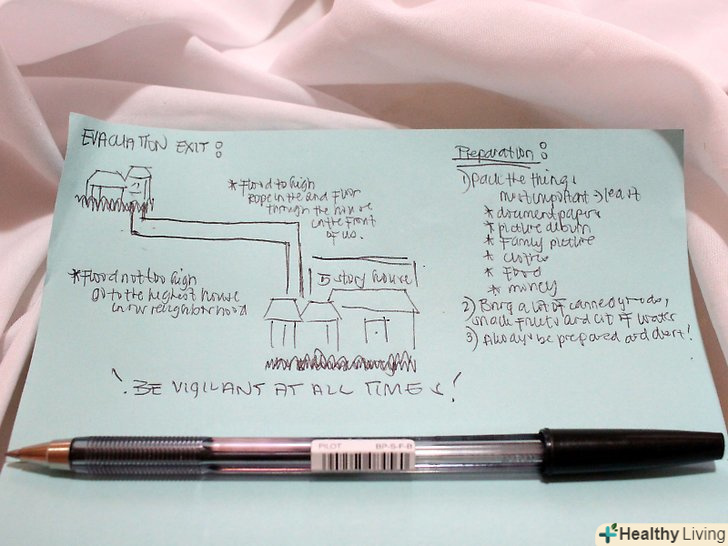 EVACUATION EXIT:
* Flood to high
rope in the 2nd floor
through the house
in the front
of us.
* Flood not too high
go to the highest house
in our neighborhood
5 story house
BE VIGILANT AT ALL TIMES!
Preparation:
1) pack the things
most important → least
* document papers
* picture album
* Family picture
* clothes
* Food
* money
2) Bring a lot of canned goods,
snack fruits and lot of water
3) Always be prepared and alert!
PILOT BP-S-F-B
Healthy Living